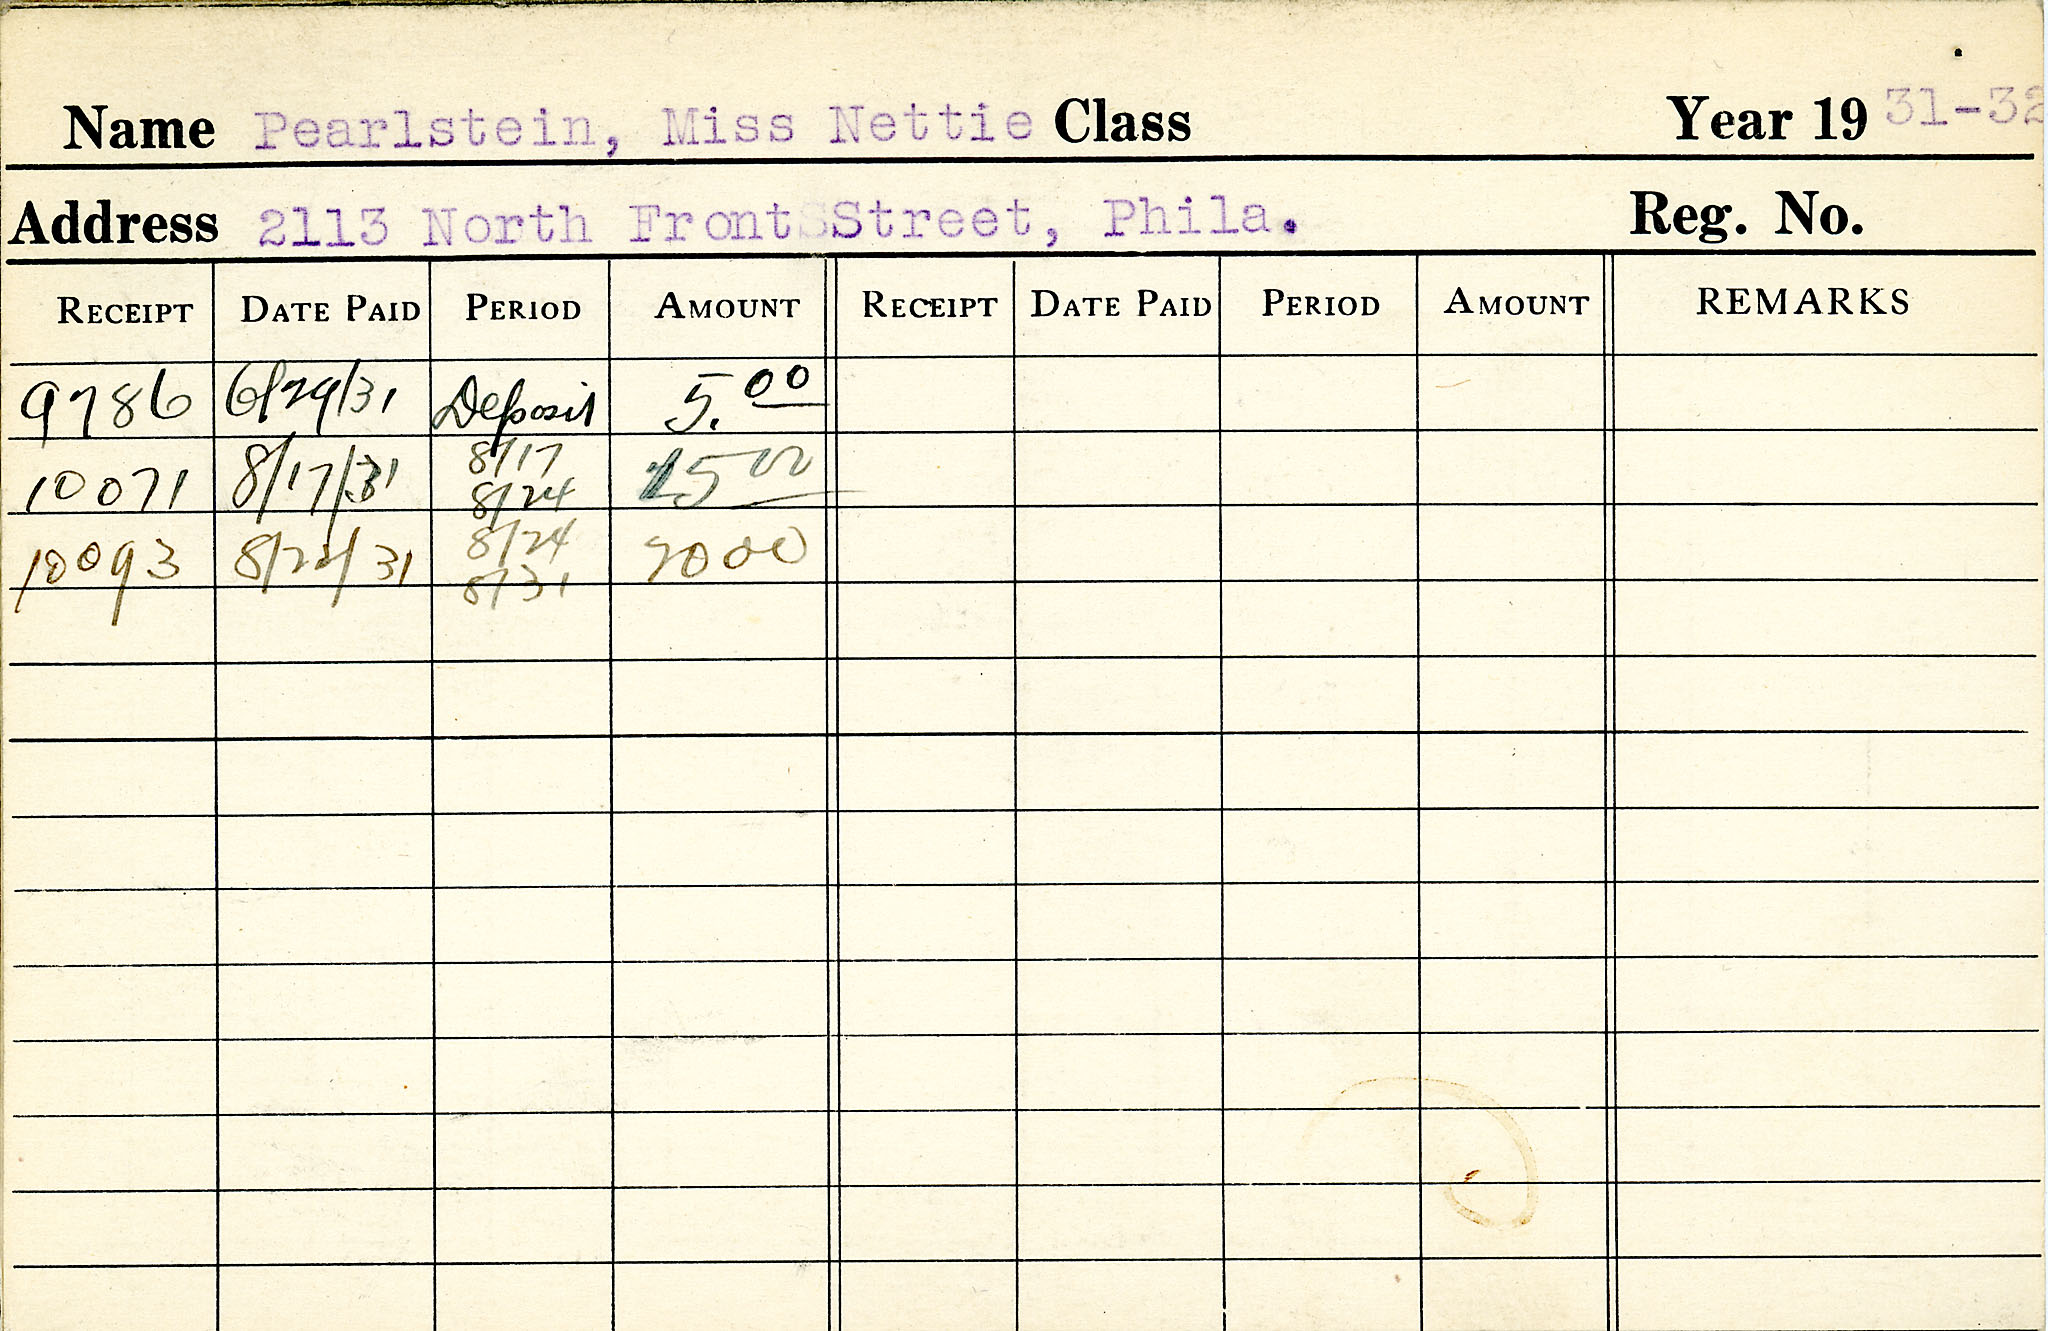 Name Pearlstein, Miss Nettie Class Year 19 31-32
Address 2113 North Front Street, Phila. Reg. No.
RECEIPT DATE PAID PERIOD AMOUNT RECEIPT DATE PAID PERIOD AMOUNT REMARKS
9786 6/29/31 Deposit 5.00
8/17
10071 8/17/31 8/24 15 00
8/24
10093 8/22/31 8/31 20 00